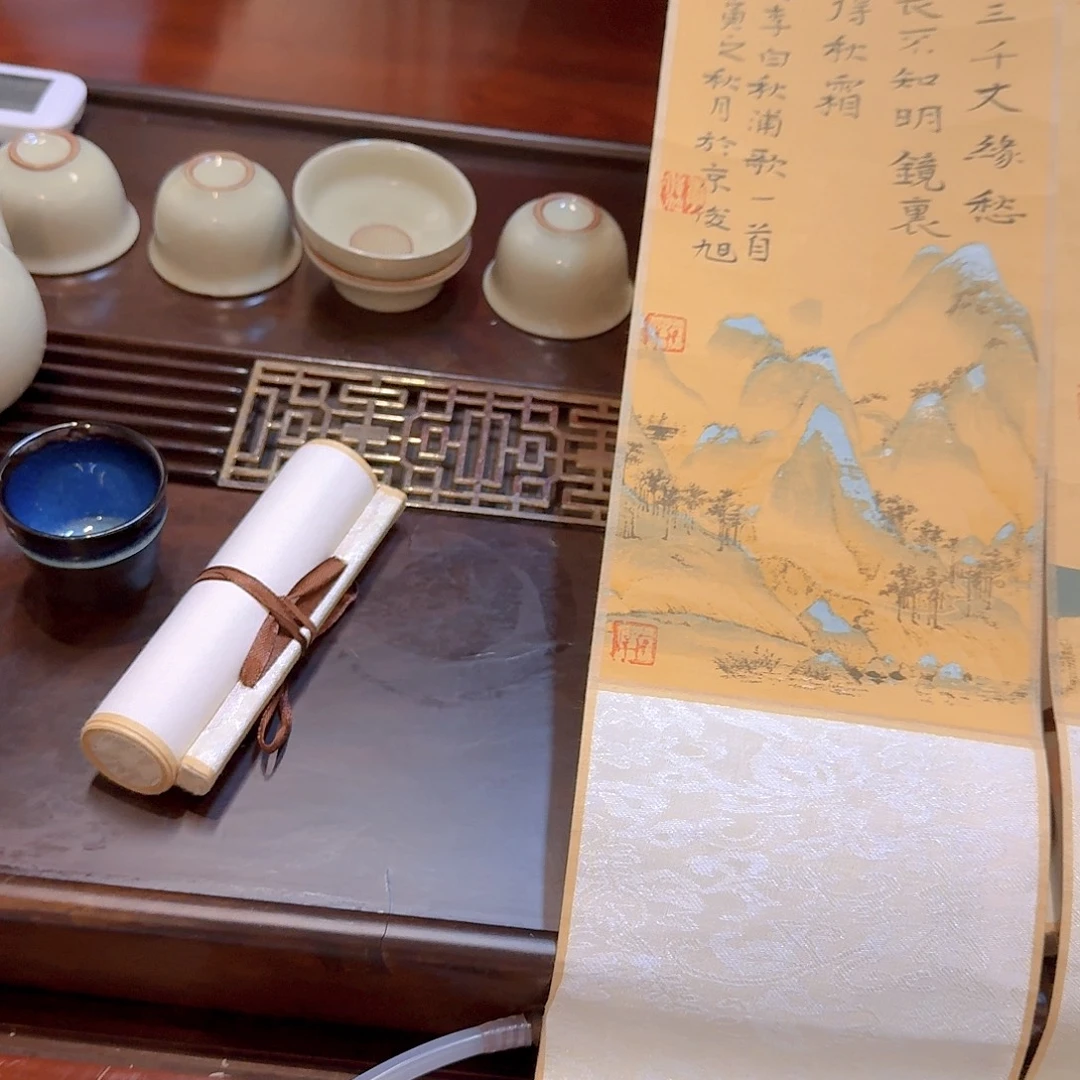 三千丈緣愁
長不知明鏡裏
得秋霜
李白秋浦歌一首
寅之秋月於京俊旭